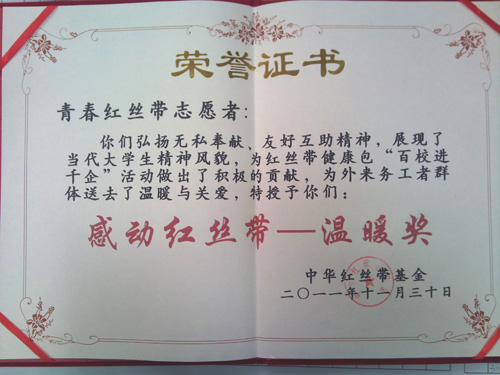 荣誉证书
青春红丝带志愿者:
你们弘扬无私奉献、友好互助精神,展现了
当代大学生精神风貌,为红丝带健康包“百校进
千企”活动做出了积极的贡献,为外来务工者群
体送去了温暖与关爱,特授予你们:
感动红丝带—温暖奖
中华红丝带基金
二〇一一年十一月三十日